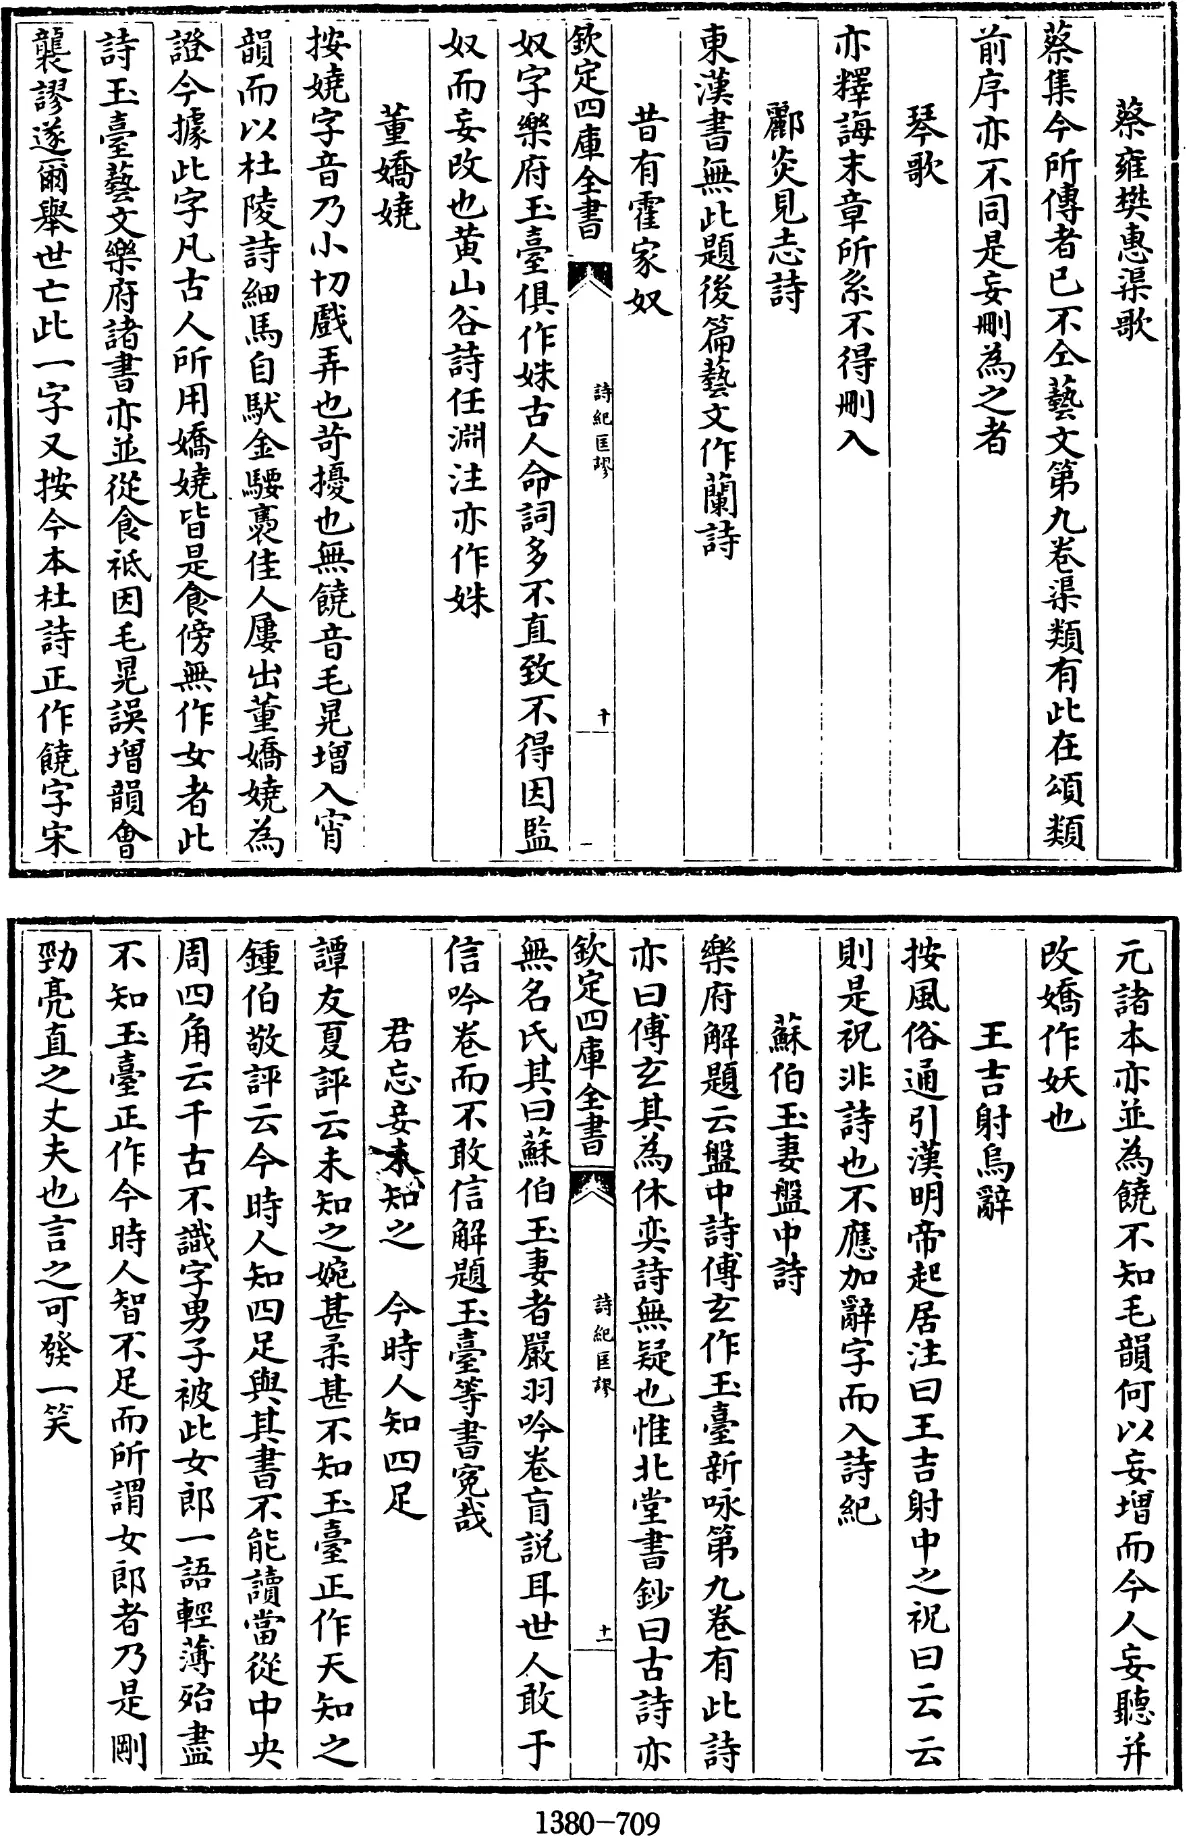 蔡雍樊惠渠歌
蔡集今所傳者已不仝藝文第九卷渠類有此在頌類
前序亦不同是妄刪為之者
琴歌
亦釋誨末章所系不得刪入
酈炎見志詩
東漢書無此題後篇藝文作蘭詩
昔有霍家奴
欽定四庫全書
詩紀匡謬
十
奴字樂府玉臺俱作姝古人命詞多不直致不得因監
奴而妄改也黄山谷詩任淵注亦作姝
董嬌嬈
按嬈字音乃小切戲弄也苛擾也無饒音毛晃增入宵
韻而以杜陵詩細馬自馱金騕褭佳人屢出董嬌嬈為
證今據此字凡古人所用嬌嬈皆是食傍無作女者此
詩玉臺藝文樂府諸書亦並從食祗因毛晃誤增韻會
襲謬遂爾舉世亡此一字又按今本杜詩正作饒字宋
元諸本亦並為饒不知毛韻何以妄增而今人妄聽并
改嬌作妖也
王吉射烏辭
按風俗通引漢明帝起居注曰王吉射中之祝曰云云
則是祝非詩也不應加辭字而入詩紀
蘇伯玉妻盤中詩
樂府解題云盤中詩傅玄作玉臺新咏第九卷有此詩
亦曰傅玄其為休奕詩無疑也惟北堂書鈔曰古詩亦
欽定四庫全書
詩紀匡謬
十一
無名氏其曰蘇伯玉妻者嚴羽吟卷盲説耳世人敢于
信吟卷而不敢信解題玉臺等書寃哉
君忘妾未知之　今時人知四足
譚友夏評云未知之婉甚柔甚不知玉臺正作天知之
鍾伯敬評云今時人知四足與其書不能讀當從中央
周四角云千古不識字男子被此女郎一語輕薄殆盡
不知玉臺正作今時人智不足而所謂女郎者乃是剛
勁亮直之丈夫也言之可發一笑
1380-709